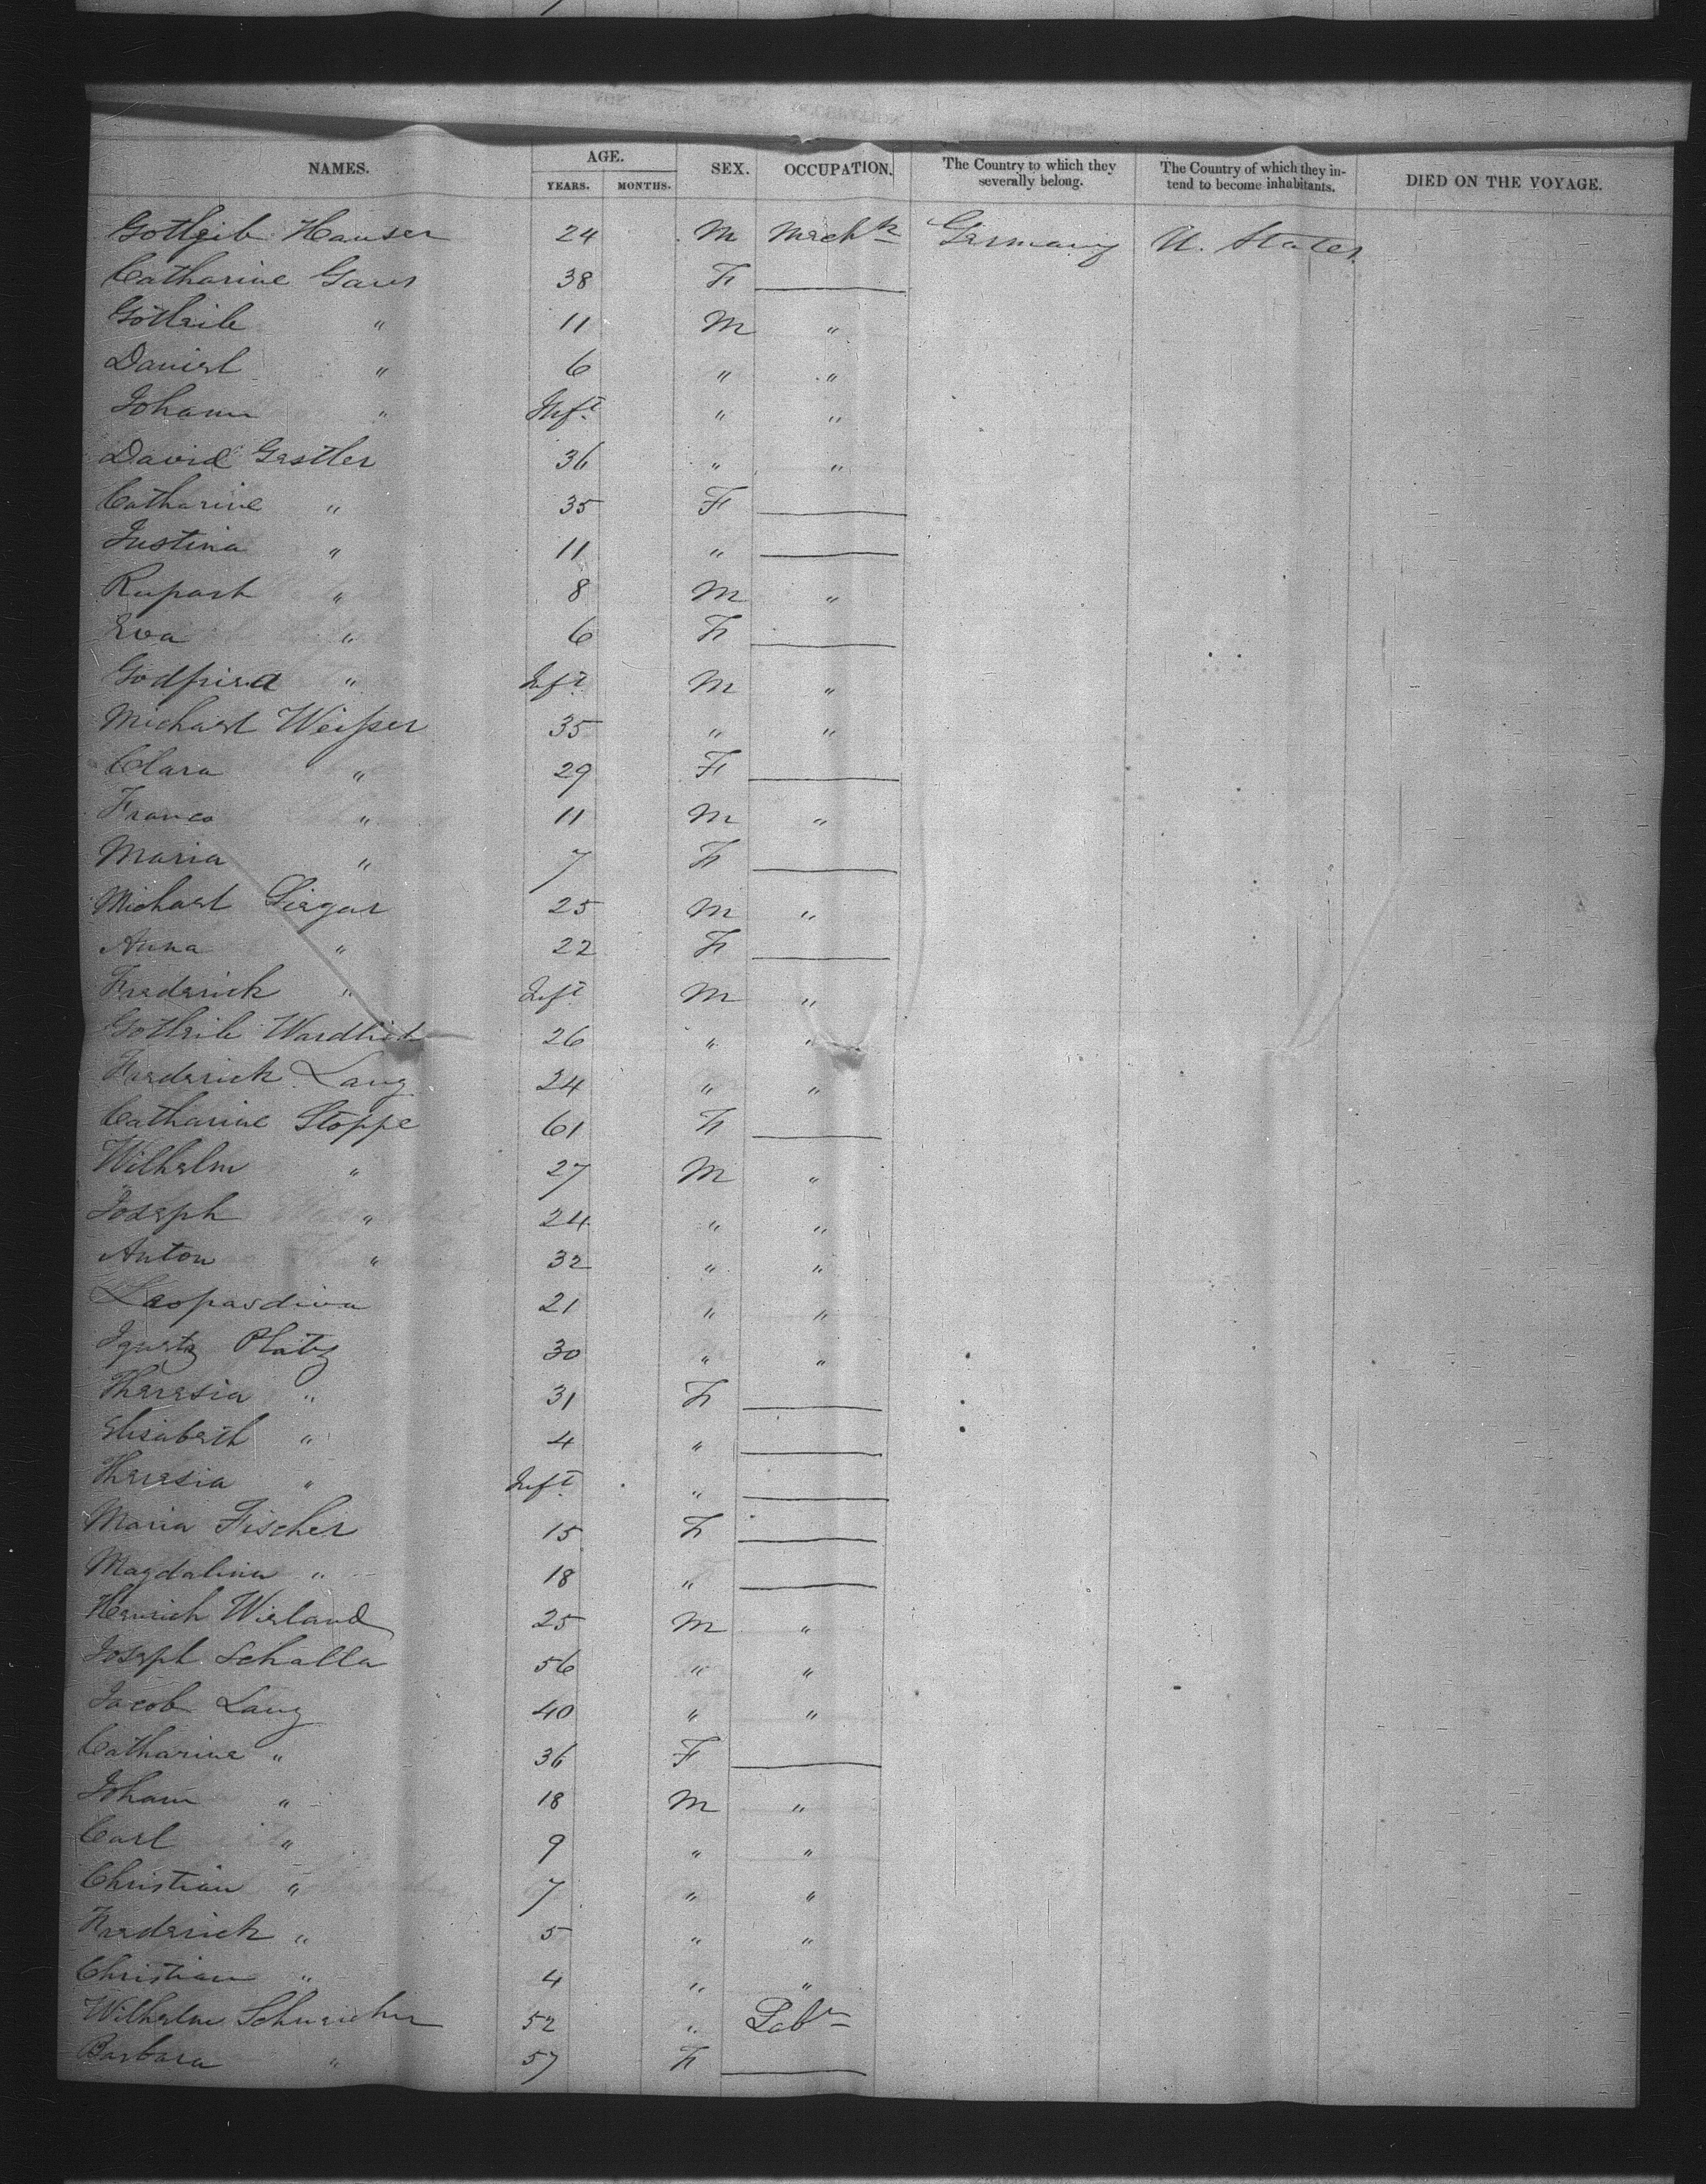 NAMES. AGE. SEX. OCCUPATION. The Country to which they severally belong. The Country of which they intend to become inhabitants. DIED ON THE VOYAGE.
YEARS. MONTHS.
Gottleib Hauser 24 M Mechk Germany U. States
Catharine Gaus 38 F
Gottleib " 11 M "
Daniel " 6 " "
Johann " Inft " "
David Gestler 36 " "
Catharine " 35 F
Justina " 11 "
Rupert " 8 M "
Eva " 6 F
Godfried " Inft M "
Michael Weisser 35 " "
Clara " 29 F
Franco " 11 M "
Maria " 7 F
Michael 25 M "
Anna " 22 F
Frederick " Inft M "
Gottleib 26 " "
Frederick Lang 24 " "
Catharine Stoppe 61 F
Wilhelm " 27 M "
Joseph " 24 " "
Anton " 32 " "
21 " "
Platz 30 " "
Theresia " 31 F
Elisabeth " 4 "
Theresia " Inft "
Maria Fischer 15 F
Magdalina " 18 "
Henrich Wieland 25 M "
Joseph Schalla 56 " "
Jacob Lang 40 " "
Catharine " 36 F
Johann " 18 M "
Carl " 9 " "
Christian " 7 " "
Frederick " 5 " "
Christian " 4 " "
Wilhelm 52 " Labr
Barbara " 57 F